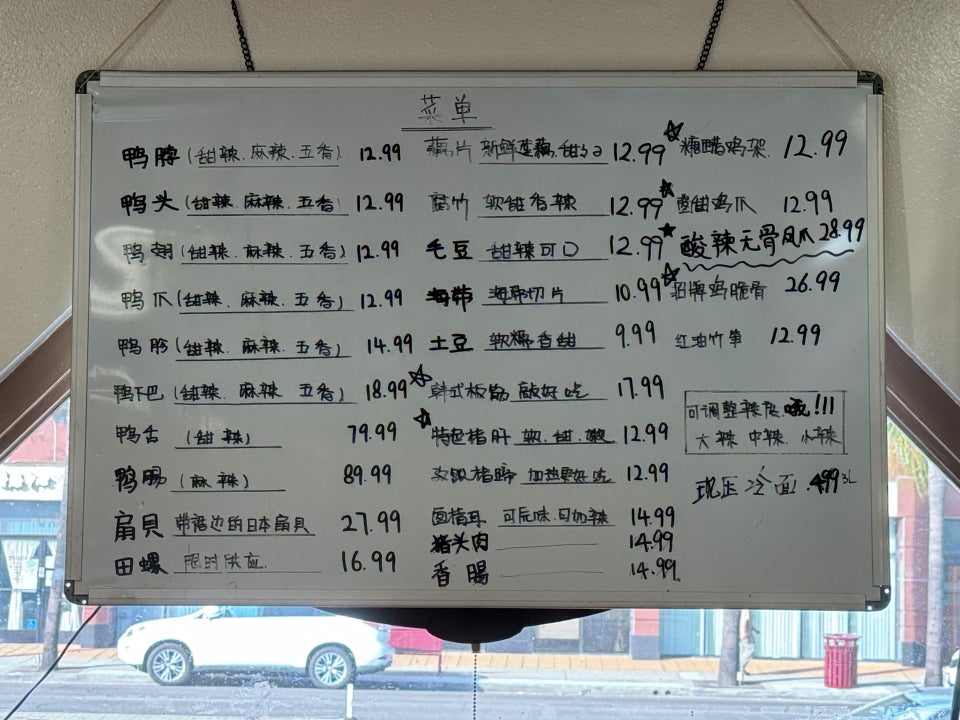 菜单
鸭脖 (甜辣.麻辣.五香) 12.99
鸭头 (甜辣.麻辣.五香) 12.99
鸭翅 (甜辣.麻辣.五香) 12.99
鸭爪 (甜辣.麻辣.五香) 12.99
鸭胗 (甜辣.麻辣.五香) 14.99
鸭下巴 (甜辣.麻辣.五香) 18.99
鸭舌 (甜辣) 79.99
鸭肠 (麻辣) 89.99
扇贝 带裙边的日本扇贝 27.99
田螺 限时供应 16.99
藕片 新鲜莲藕.甜 12.99
腐竹 软甜香辣 12.99
毛豆 甜辣可口 12.99
海带 海带切片 10.99
土豆 软糯香甜 9.99
☆韩式板筋 敲好吃 17.99
☆特色猪肝 软.甜.嫩 12.99
猪蹄 加热更好吃 12.99
卤猪耳 可原味.可加辣 14.99
猪头肉 14.99
香腸 14.99
☆糖醋鸡架 12.99
☆鸡爪 12.99
★酸辣无骨凤爪 28.99
☆招牌鸡脆骨 26.99
红油竹笋 12.99
可调整辣度哦!!!
大辣 中辣 小辣
现压冷面 4.99